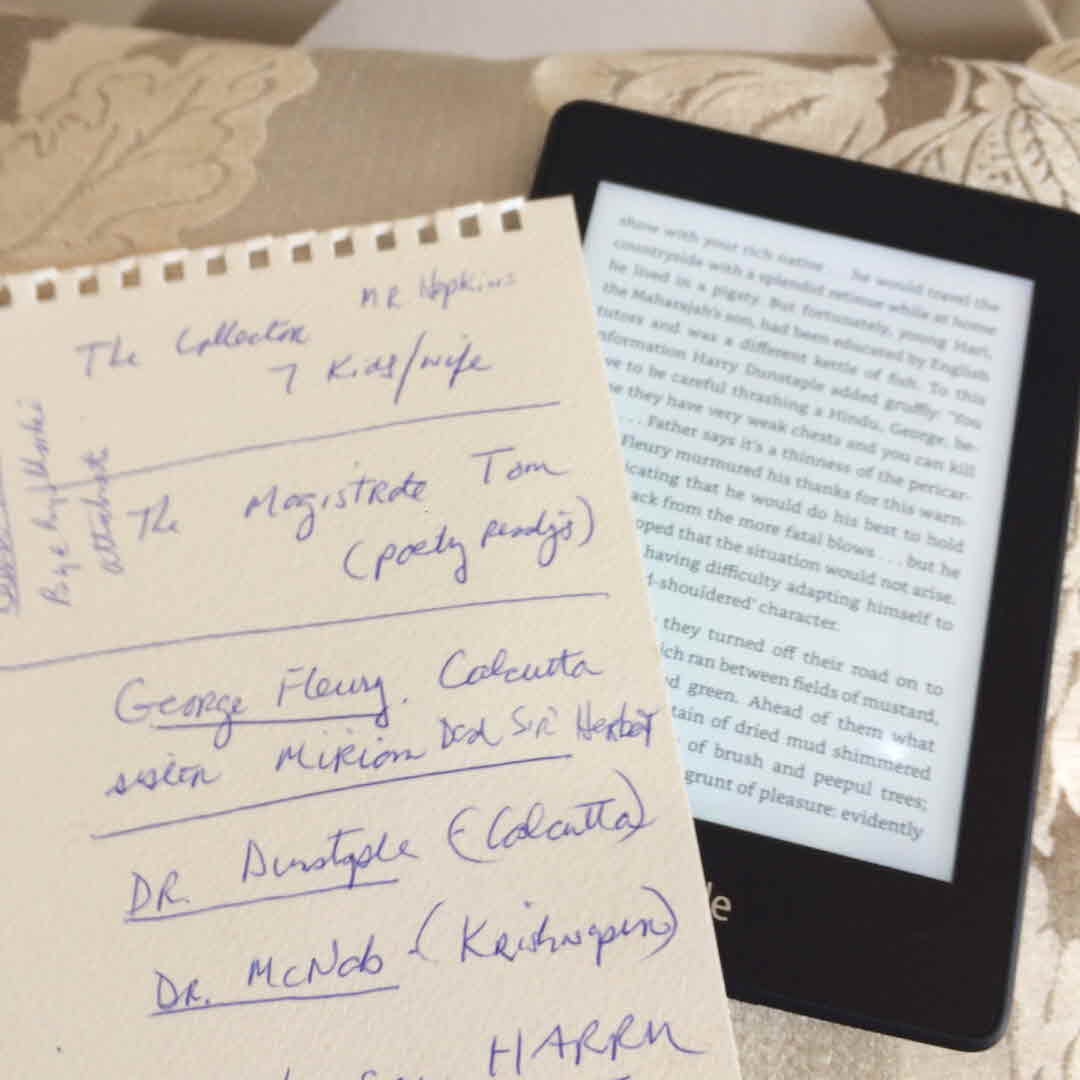 MR Hopkins
The Collector
7 Kids/wife
attachment
The Magistrate Tom
(poetry readgs)
George Fleury. Calcutta
sister Miriam Dad Sir Herbert
DR. Dunstaple (Calcutta)
DR. McNab - (Krishnapur)
HARRY
show with your rich native . . . he would travel the
countryside with a splendid retinue while at home
he lived in a pigsty. But fortunately, young Hari,
the Maharajah's son, had been educated by English
tutors and was a different kettle of fish. To this
nformation Harry Dunstaple added gruffly: "You
ve to be careful thrashing a Hindu, George, be-
e they have very weak chests and you can kill
. . . Father says it's a thinness of the pericar-
Fleury murmured his thanks for this warn-
icating that he would do his best to hold
ack from the more fatal blows . . . but he
oped that the situation would not arise.
having difficulty adapting himself to
d-shouldered' character.
they turned off their road on to
ich ran between fields of mustard,
d green. Ahead of them what
tain of dried mud shimmered
of brush and peepul trees;
grunt of pleasure: evidently
le